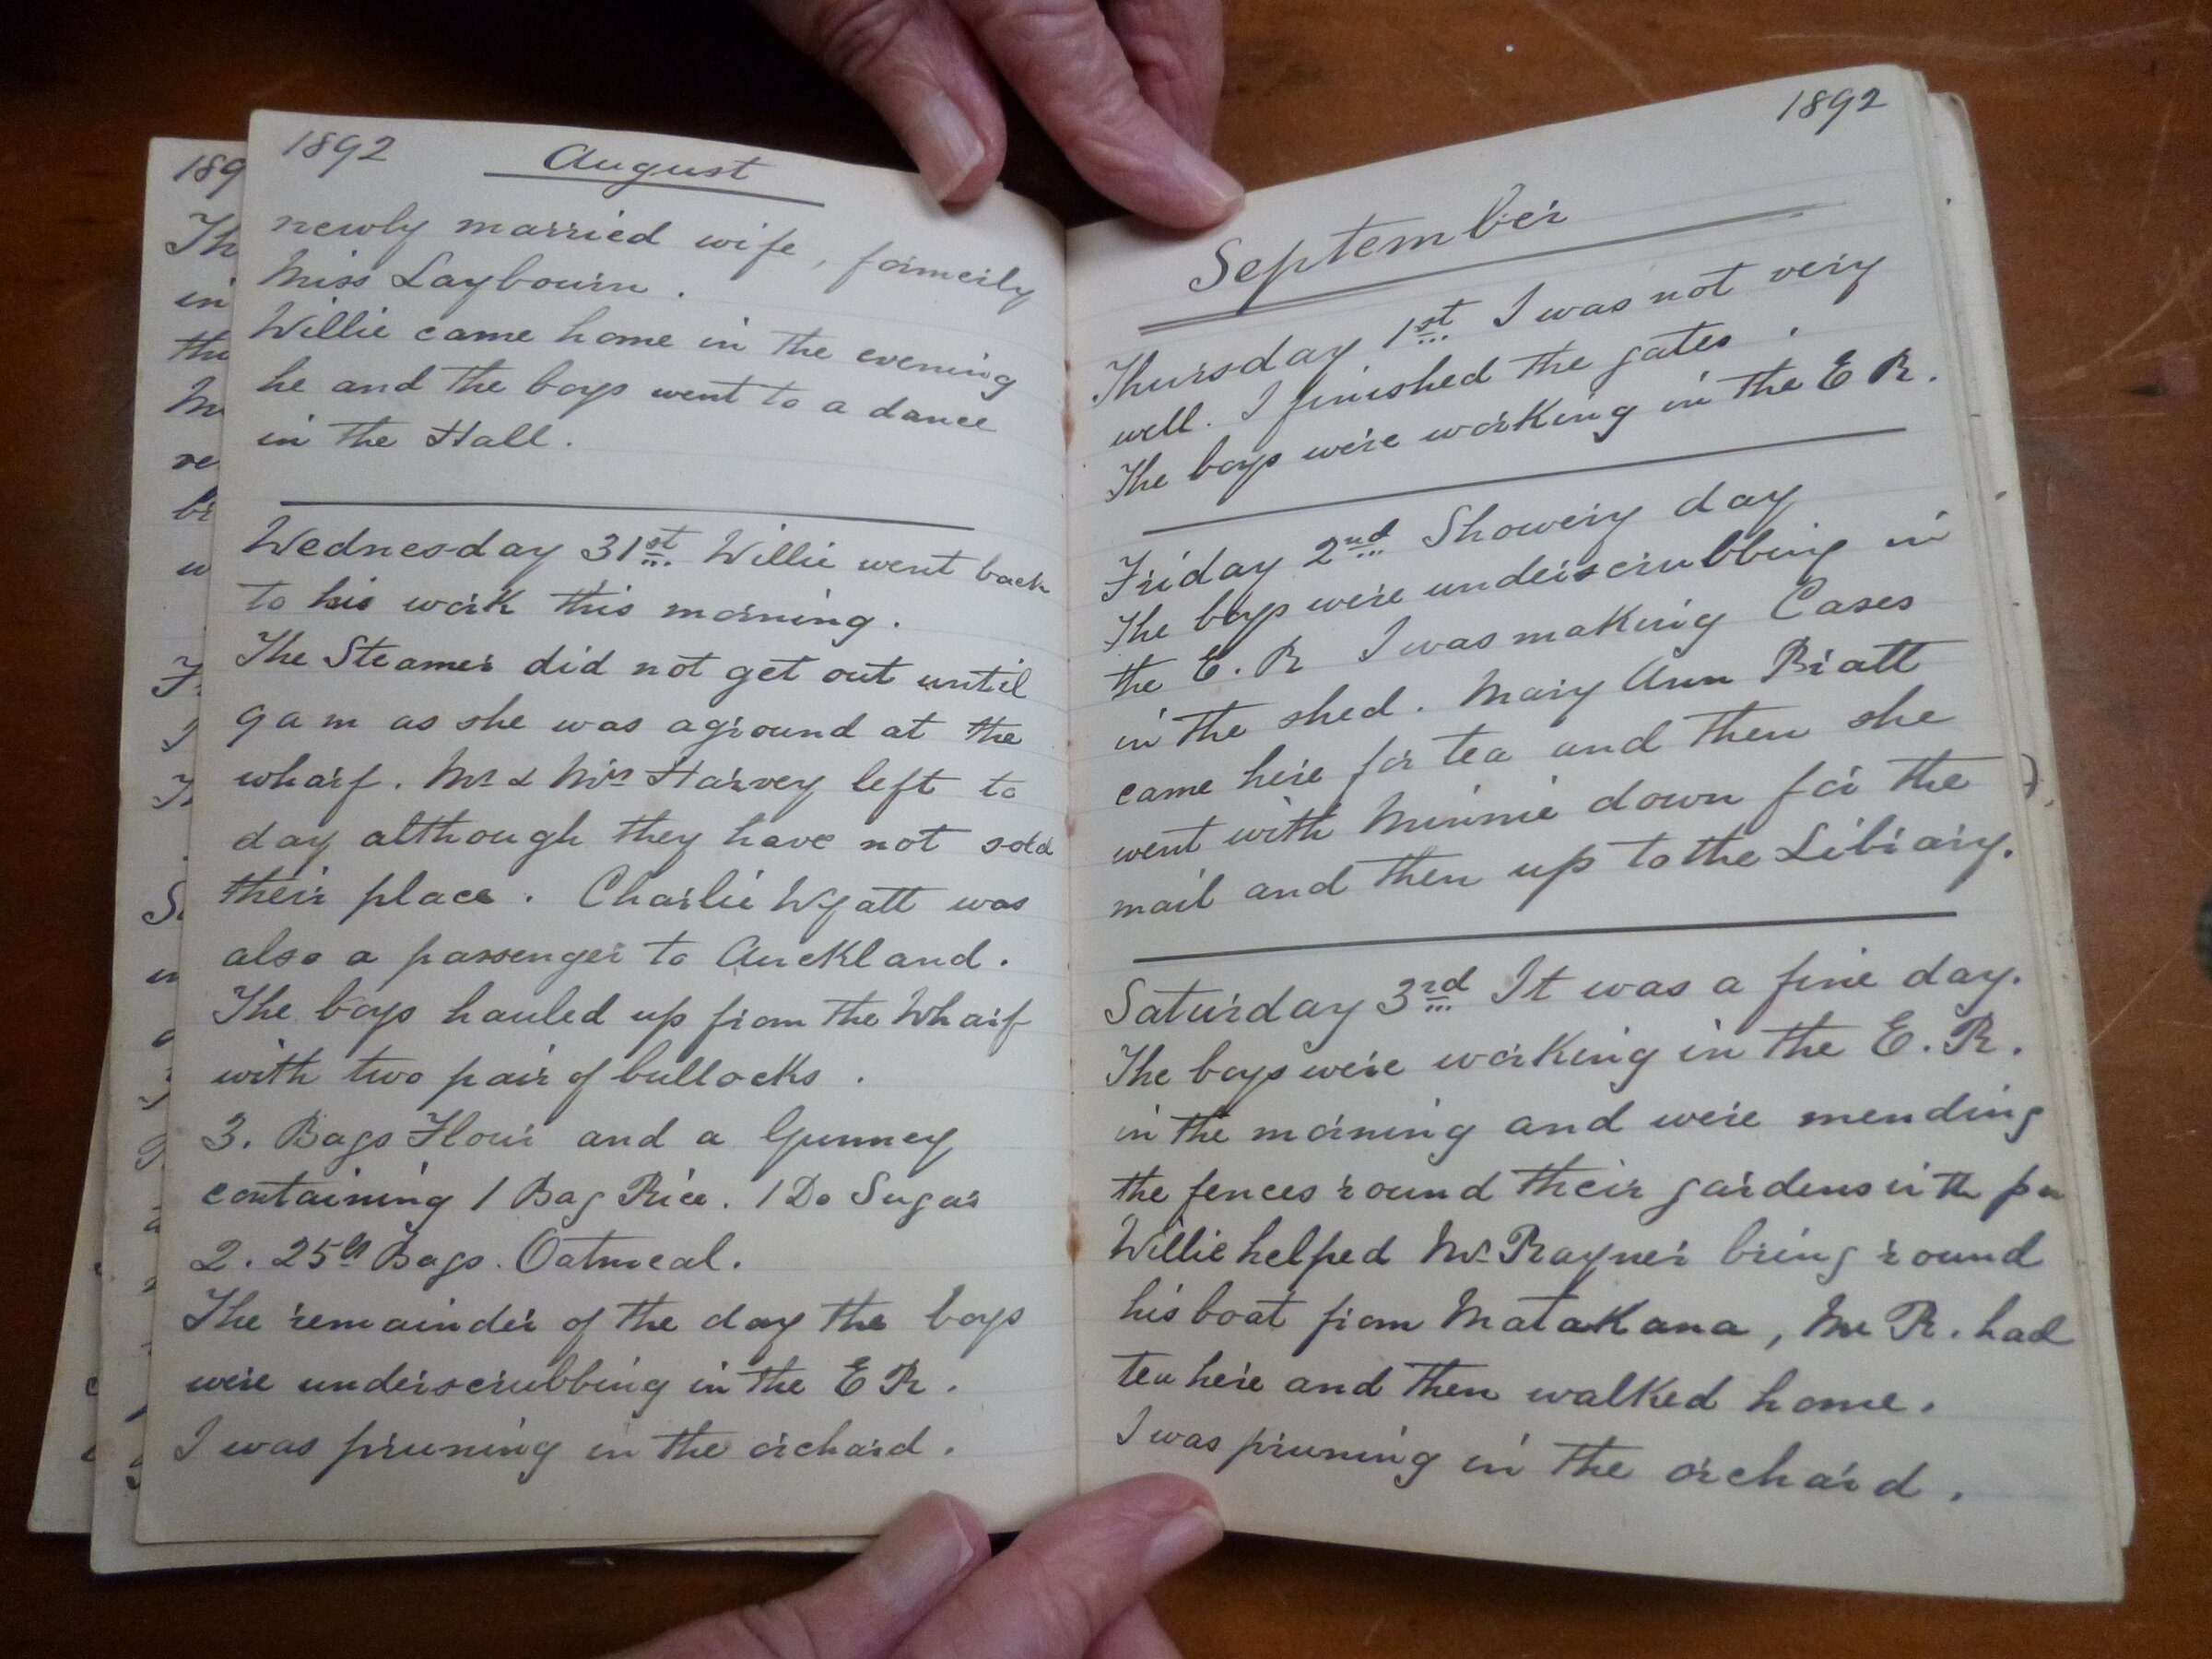 1892 August
newly married wife, formerly
Miss Laybourn.
Willie came home in the evening
he and the boys went to a dance
in the Hall.
Wednesday 31st. Willie went back
to his work this morning.
The Steamer did not get out until
9 a m as she was aground at the
wharf. Mr & Mrs Harvey left to
day although they have not sold
their place. Charlie Wyatt was
also a passenger to Auckland.
The boys hauled up from the Wharf
with two pair of bullocks.
3. Bags Flour and a Gunney
containing 1 Bag Rice. 1 Do Sugar
2. 25lb Bags. Oatmeal.
The remainder of the day the boys
were underscrubbing in the E R.
I was pruning in the orchard.
1892
September
Thursday 1st I was not very
well. I finished the gates.
The boys were working in the E R.
Friday 2nd Showery day
The boys were underscrubbing in
the E. R I was making Cases
in the shed. Mary Ann Bratt
came here for tea and then she
went with Minnie down for the
mail and then up to the Library.
Saturday 3rd It was a fine day.
The boys were working in the E. R.
in the morning and were mending
the fences round their gardens in the pm
Willie helped Mr Rayner bring round
his boat from Matakana, Mr R. had
tea here and then walked home.
I was pruning in the orchard.
189
Th
in
the
M
re
br
w